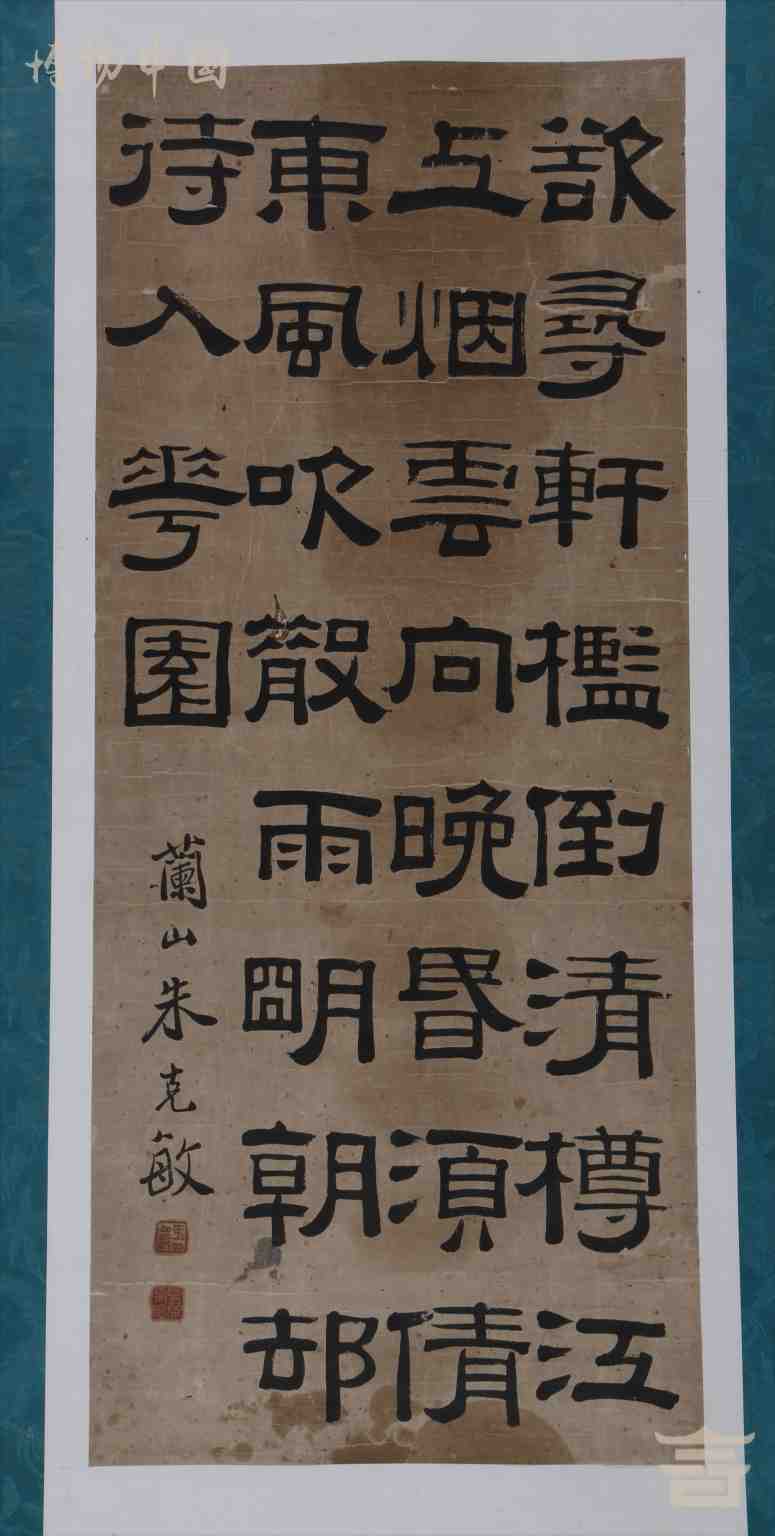 博物中国
欲尋軒檻倒清樽江
上烟雲向晚昏須倩
東風吹散雨明朝却
待入華園
蘭山朱克敏